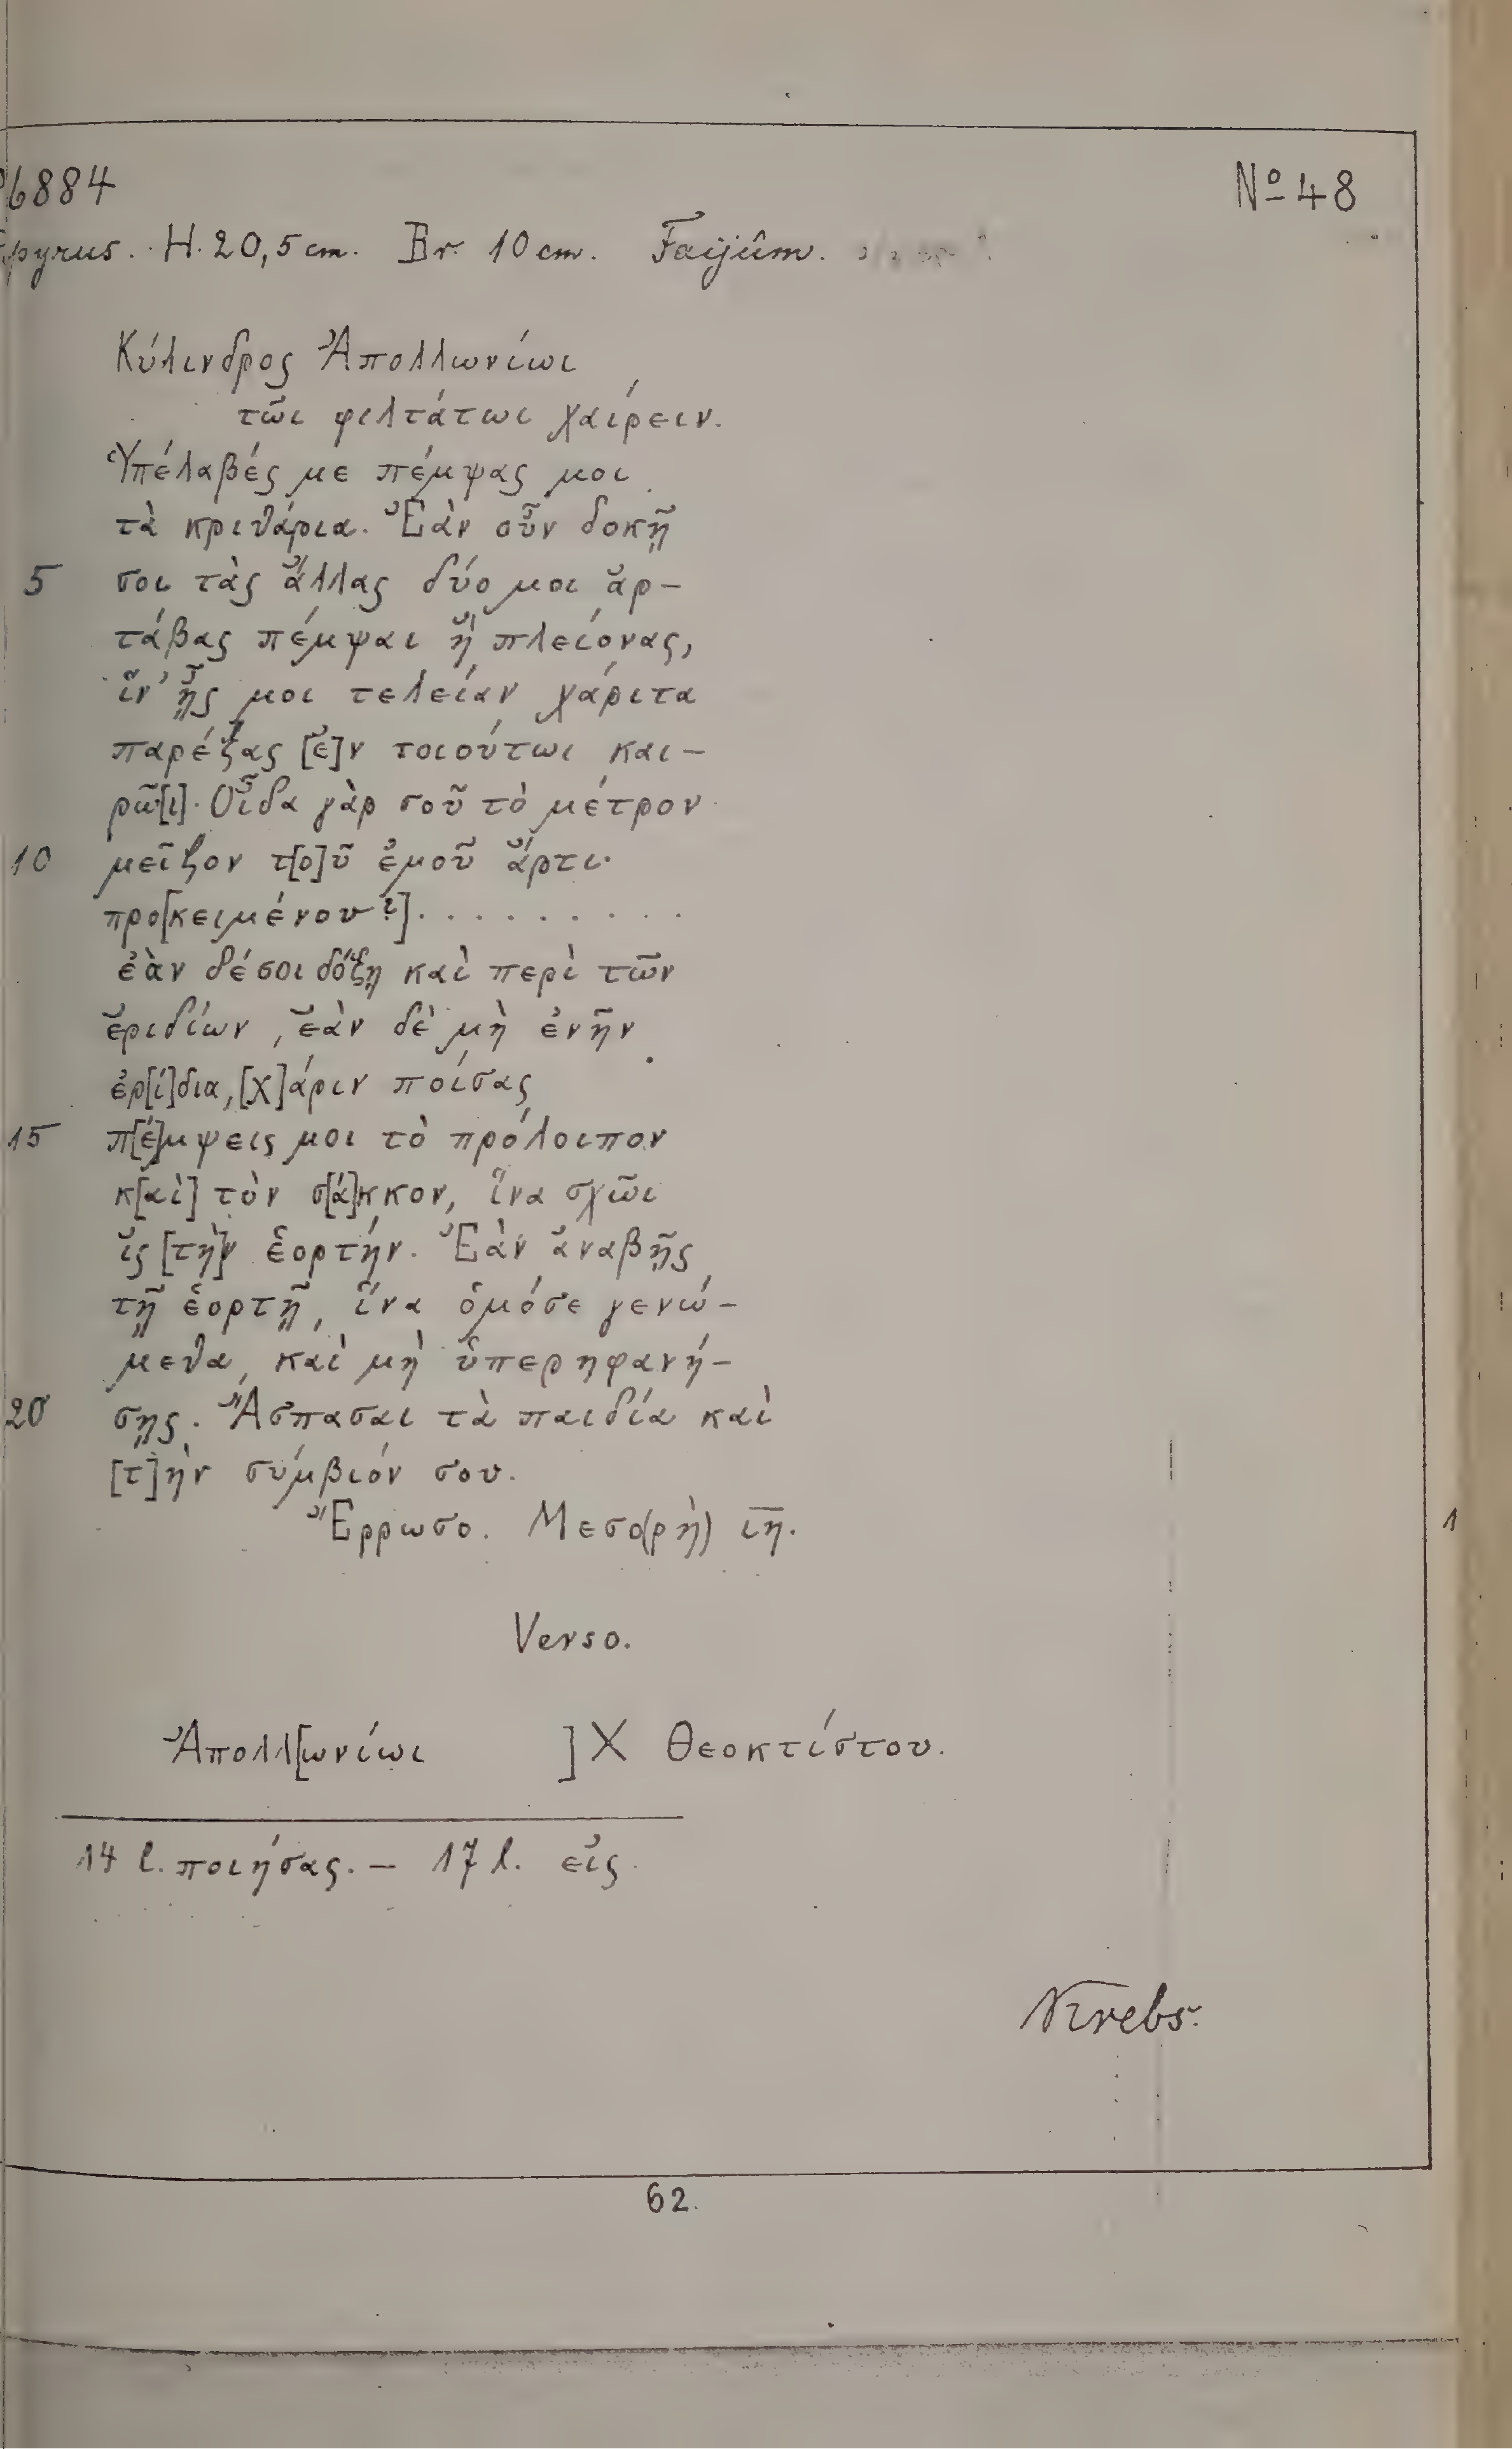 6884 Nº 48
pyrus. H. 20,5 cm. Br. 10 cm. Faijûm.
Κύλινδρος Ἀπολλωνίωι
τῶι φιλτάτωι χαίρειν.
Ὑπέλαβές με πέμψας μοι
τὰ κριθάρια. Ἐὰν οὖν δοκῇ
5 σοι τὰς ἄλλας δύο μοι ἀρ-
τάβας πέμψαι ἢ πλείονας,
ἵν' ᾖς μοι τελείαν χάριτα
παρέξας [ἐ]ν τοιούτωι και-
ρῶ[ι]. Οἶδα γὰρ σοῦ τὸ μέτρον
10 μεῖζον τ[ο]ῦ ἐμοῦ ἄρτι
προ[κειμένου?]. . . . . . . . . .
ἐὰν δέ σοι δόξῃ καὶ περὶ τῶν
ἐριδίων, ἐὰν δὲ μὴ ἐνῆν
ἐρ[ί]δια, [χ]άριν ποίσας
15 π[έ]μψεις μοι τὸ πρόλοιπον
κ[αὶ] τὸν σ[ά]κκον, ἵνα σχῶι
ἰς [τὴ]ν ἑορτήν. Ἐὰν ἀναβῇς
τῇ ἑορτῇ, ἵνα ὁμόσε γενώ-
μεθα, καὶ μὴ ὑπερηφανή-
20 σῃς. Ἄσπασαι τὰ παιδία καὶ
[τ]ὴν σύμβιόν σου.
Ἔρρωσο. Μεσο(ρὴ) ι̅η̅.
Verso.
Ἀπολλ[ωνίωι ] X Θεοκτίστου.
14 l. ποιήσας. – 17 l. εἰς
Krebs.
62.
1